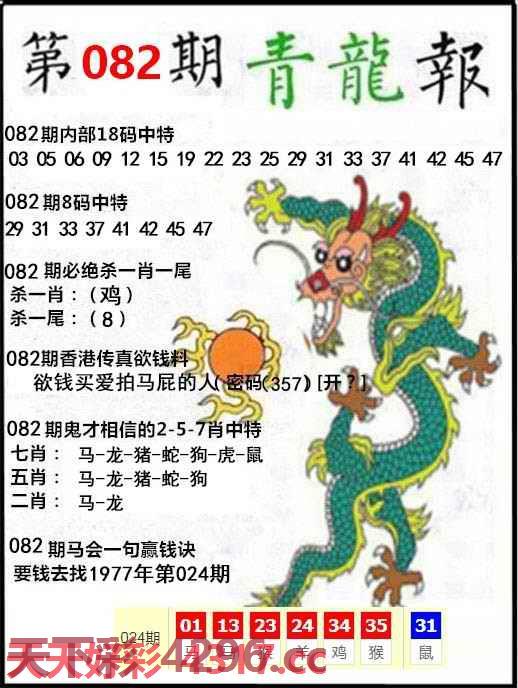 第082期青龍報
082期内部18码中特
03 05 06 09 12 15 19 22 23 25 29 31 33 37 41 42 45 47
082期8码中特
29 31 33 37 41 42 45 47
082期必绝杀一肖一尾
杀一肖：(鸡)
杀一尾：(8)
082期香港传真欲钱料
欲钱买爱拍马屁的人(密码(357)[开?]
082期鬼才相信的2-5-7肖中特
七肖：马-龙-猪-蛇-狗-虎-鼠
五肖：马-龙-猪-蛇-狗
二肖：马-龙
082期马会一句赢钱诀
要钱去找1977年第024期
024期 01 13 23 24 34 35 31
马 马 猴 羊 鸡 猴 鼠
天下彩4296.cc